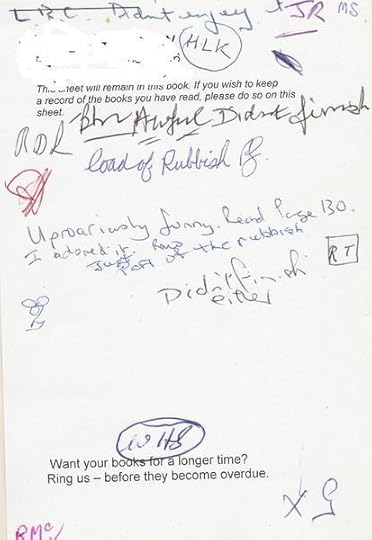 L.B.C. Didn't enjoy it JR MS.
HLK
This sheet will remain in this book. If you wish to keep
a record of the books you have read, please do so on this
sheet.
Awful Didnt finish
RDR
load of Rubbish
Uproariously funny. Read Page 130.
I adored it.
Just part of the rubbish
RT
Didn't finish
either
WHS
Want your books for a longer time?
Ring us – before they become overdue.
X G
RMC